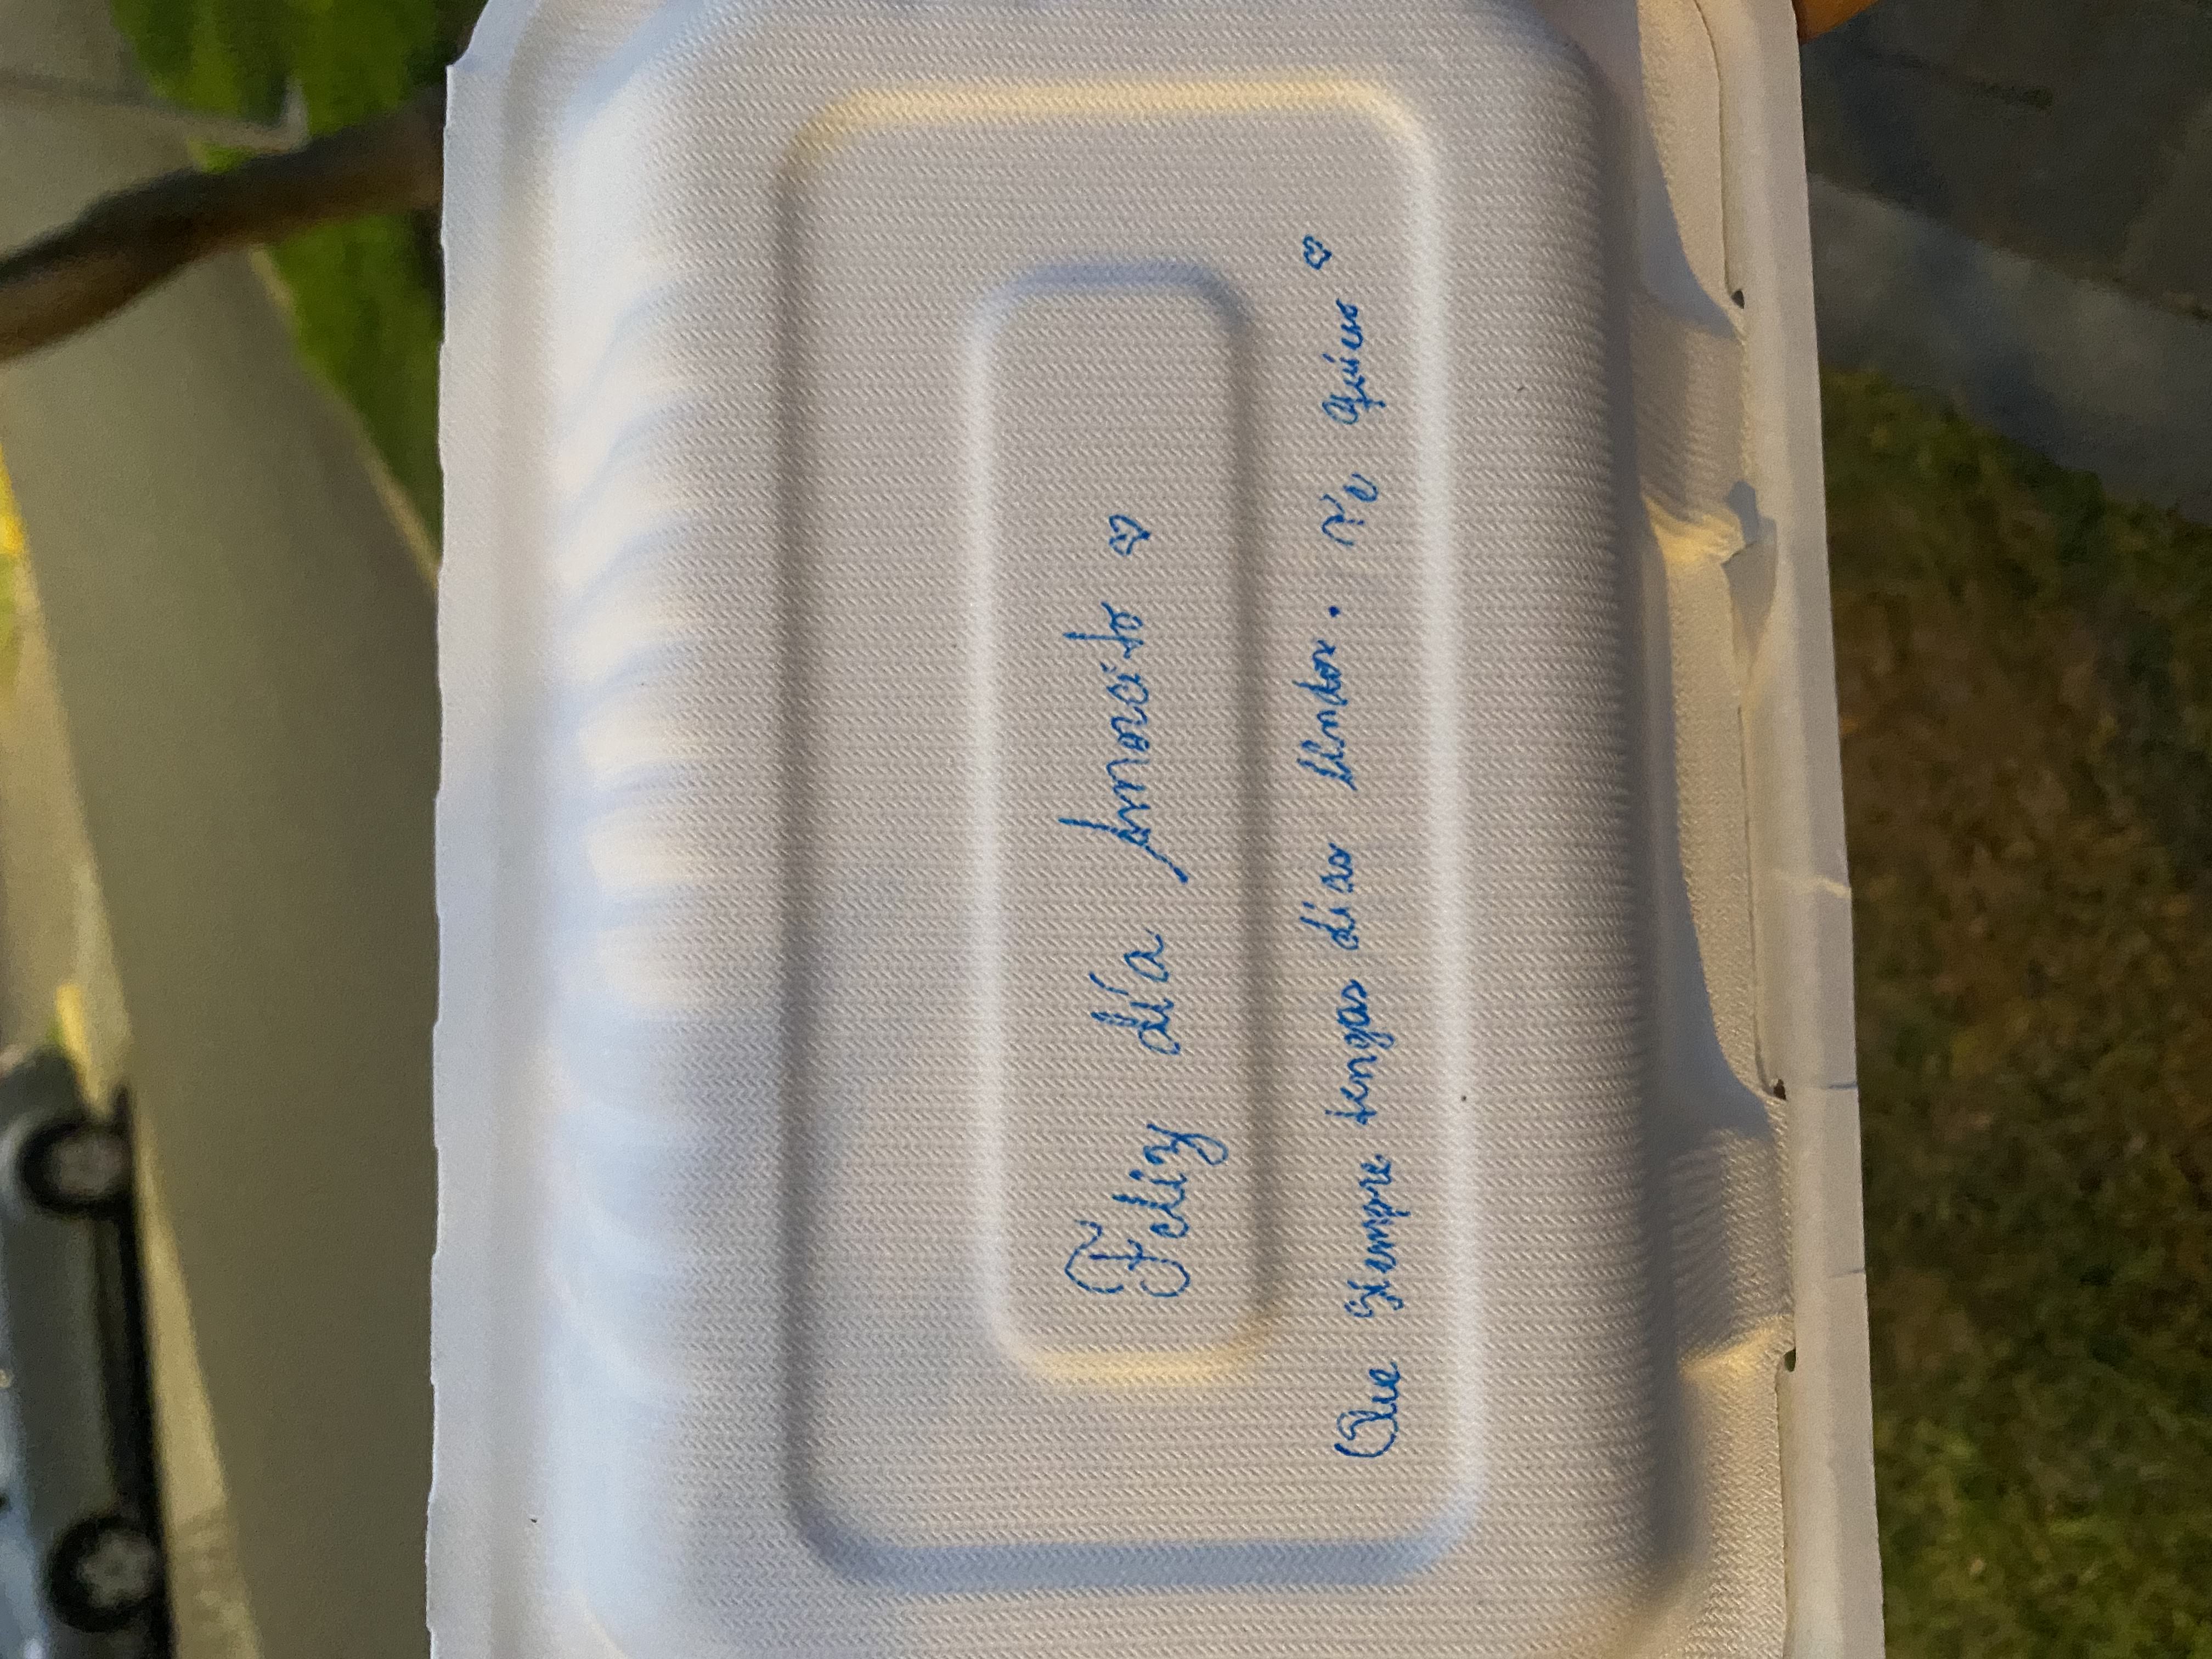 Feliz día Amorcito ♡
Que siempre tengas días lindos. Te quiero ♡